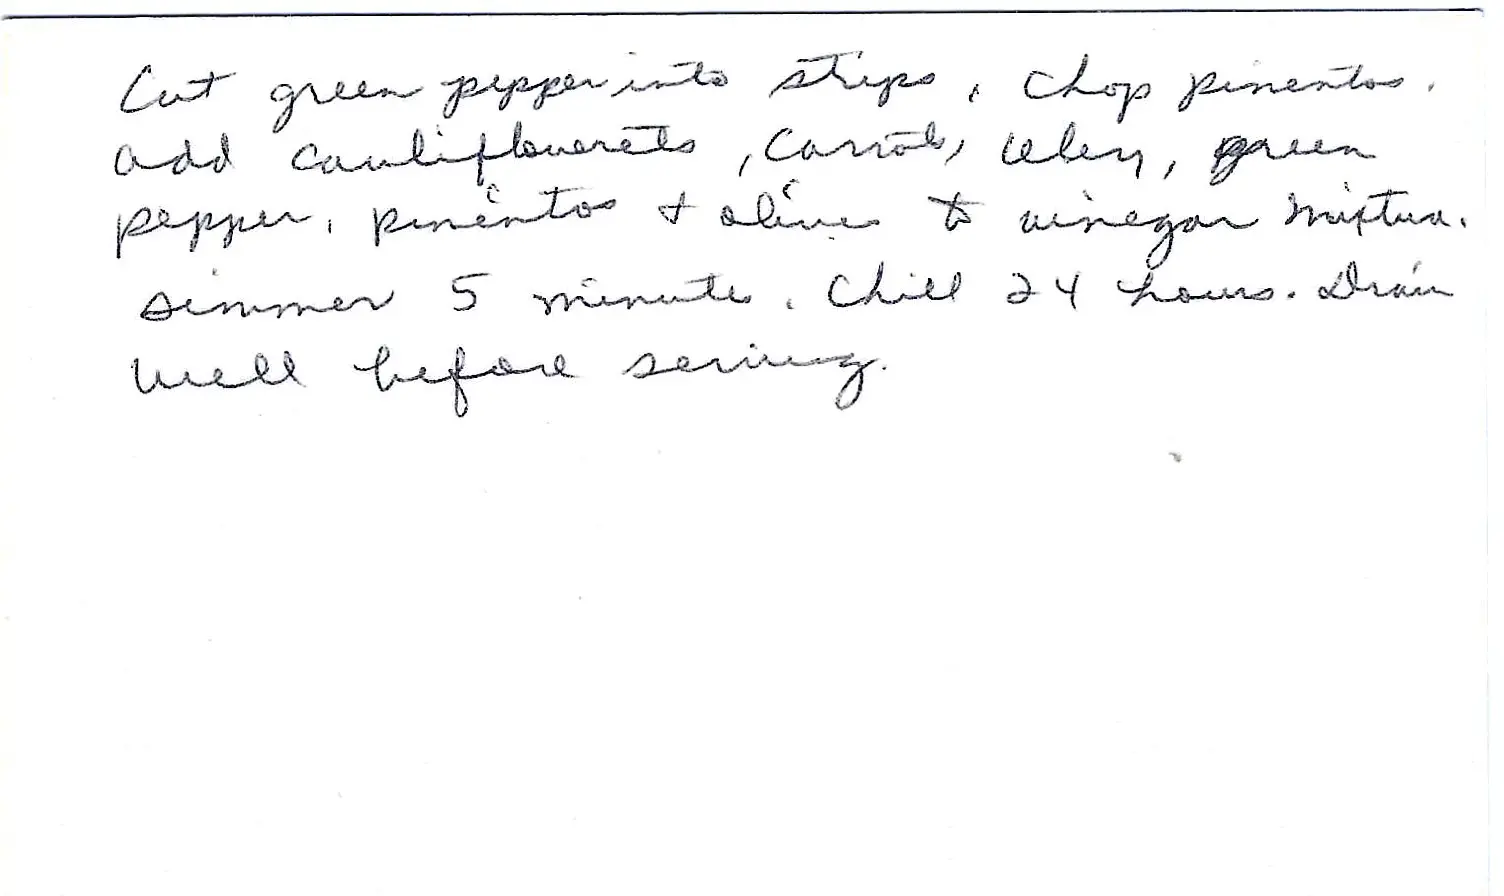 Cut green pepper into strips, chop pimentos.
add cauliflowerets, carrots, celery, green
pepper, pimentos + olives to vinegar mixture.
simmer 5 minutes. Chill 24 hours. Drain
well before serving.